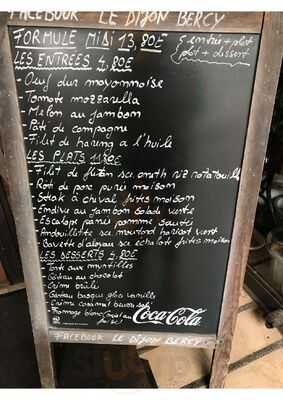 FACEBOOK LE DIJON BERCY
FORMULE MIDI 13,80€ { entrée + plat
plat + dessert
LES ENTRÉES 4,80€
- Oeuf dur mayonnaise
- Tomate mozzarella
- Melon au jambom
- Pâté de campagne
- Filet de hareng a l'huile
LES PLATS 11,80€
- Filet de sce aneth riz ratatouille
- Roti de porc purée maison
- Steak a cheval frites maison
- Endive au jambon salade verte
- Escalope panée pomme sautés
- Andouillette sce moutard haricot vert
- Bavette d'aloyau sce echalot frites maison
LES DESSERTS 4,80€
- Tarte aux myrtilles
- Gâteau au chocolat
- Crème brûlé
- Gâteau basque glace vanille
- Crème caramel
- Fromage blanc
Coca-Cola
FACEBOOK LE DIJON BERCY